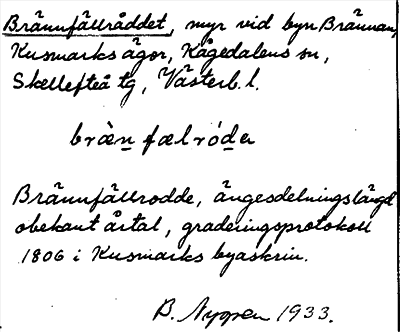 Brännfällråddet, myr vid byn Brännan,
Kusmarks ägor, Kågedalens sn,
Skellefteå tg, Västerb. l.
brän fælróda
Brännfällrodde, ängesdelningslängd
obekant årtal, graderingsprotokoll
1806 i Kusmarks byaskrin.
B. Nygren 1933.